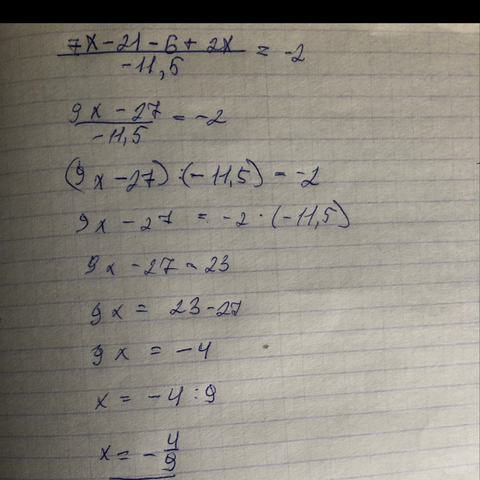 7x-21-6+2x = -2
-11,5
9x-27 = -2
-11,5
(9x-27):(-11,5) = -2
9x-27 = -2·(-11,5)
9x-27=23
9x = 23-27
9x = -4
x = -4:9
x = -4/9